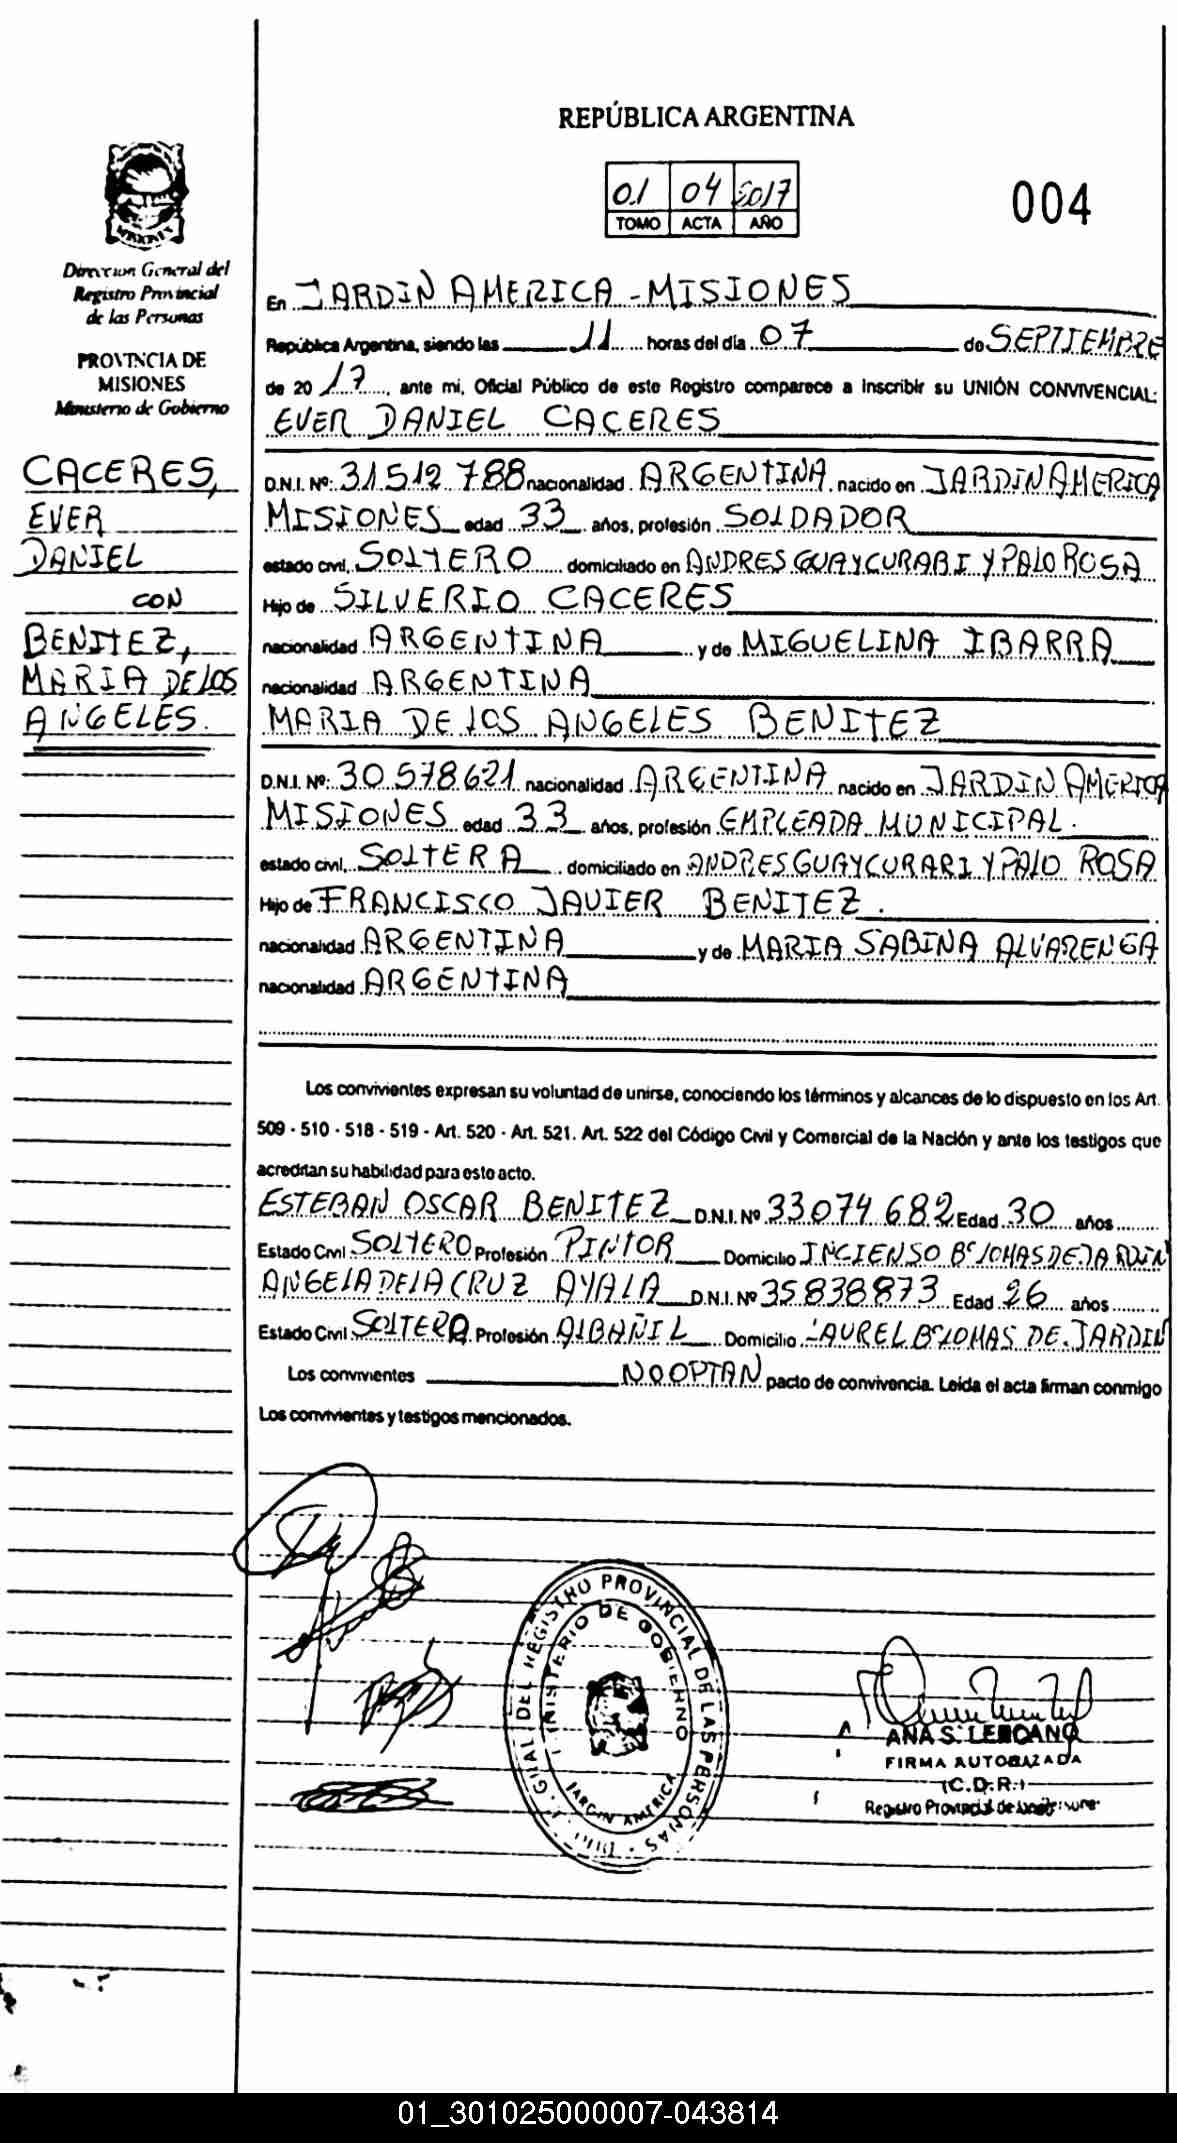 REPÚBLICA ARGENTINA
01 04 2017
TOMO ACTA AÑO
004
Direccion General del
Registro Provincial
de las Personas
PROVINCIA DE
MISIONES
Ministerio de Gobierno
CACERES,
EVER
DANIEL
CON
BENITEZ,
MARIA DE LOS
ANGELES.
En JARDIN AMERICA - MISIONES
República Argentina, siendo las 11 horas del día 07 de SEPTIEMBRE
de 20 17, ante mi, Oficial Público de este Registro comparece a inscribir su UNIÓN CONVIVENCIAL:
EVER DANIEL CACERES
D.N.I. Nº: 31.512.788 nacionalidad ARGENTINA nacido en JARDIN AMERICA
MISIONES edad 33 años, profesión SOLDADOR
estado civil, SOLTERO domiciliado en ANDRES GUAYCURARI Y PALO ROSA
Hijo de SILVERIO CACERES
nacionalidad ARGENTINA y de MIGUELINA IBARRA
nacionalidad ARGENTINA
MARIA DE LOS ANGELES BENITEZ
D.N.I. Nº: 30.578.621 nacionalidad ARGENTINA nacido en JARDIN AMERICA
MISIONES edad 33 años, profesión EMPLEADA MUNICIPAL.
estado civil, SOLTERA domiciliado en ANDRES GUAYCURARI Y PALO ROSA
Hijo de FRANCISCO JAVIER BENITEZ.
nacionalidad ARGENTINA y de MARIA SABINA ALVARENGA
nacionalidad ARGENTINA
Los convivientes expresan su voluntad de unirse, conociendo los términos y alcances de lo dispuesto en los Art.
509 - 510 - 518 - 519 - Art. 520 - Art. 521. Art. 522 del Código Civil y Comercial de la Nación y ante los testigos que
acreditan su habilidad para esto acto.
ESTEBAN OSCAR BENITEZ D.N.I. Nº 33.074.682 Edad 30 años
Estado Civil SOLTERO Profesión PINTOR Domicilio INCIENSO Bº LOMAS DE JARDIN
ANGELA DE LA CRUZ AYALA D.N.I. Nº 35.838.873 Edad 26 años
Estado Civil SOLTERA Profesión ALBAÑIL Domicilio LAUREL Bº LOMAS DE JARDIN
Los convivientes NO OPTAN pacto de convivencia. Leida el acta firman conmigo
Los convivientes y testigos mencionados.
GRAL DEL REGISTRO PROVINCIAL DE LAS PERSONAS
MINISTERIO DE GOBIERNO
JARDIN AMERICA
ANA S. LEDCANO
FIRMA AUTORIZADA
(C.D.R.)
Registro Provincial de las Personas
01_301025000007-043814